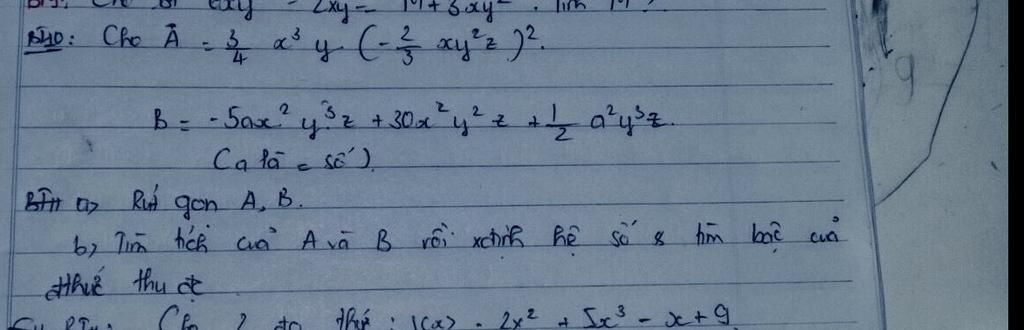 - 2xy = M + 3xy² . Tìm M ?
B10: Cho A = 3/4 x³ y (-2/3 xy²z)².
B = -5ax² y³z + 30x² y² z + 1/2 a²y³z.
(a là = số)
a) Rút gọn A, B.
b) Tìm tích của A và B rồi xđịnh hệ số & tìm bậc của
đthức thu đc
Cho 2 đa thức : 2x² + 5x³ - x + 9